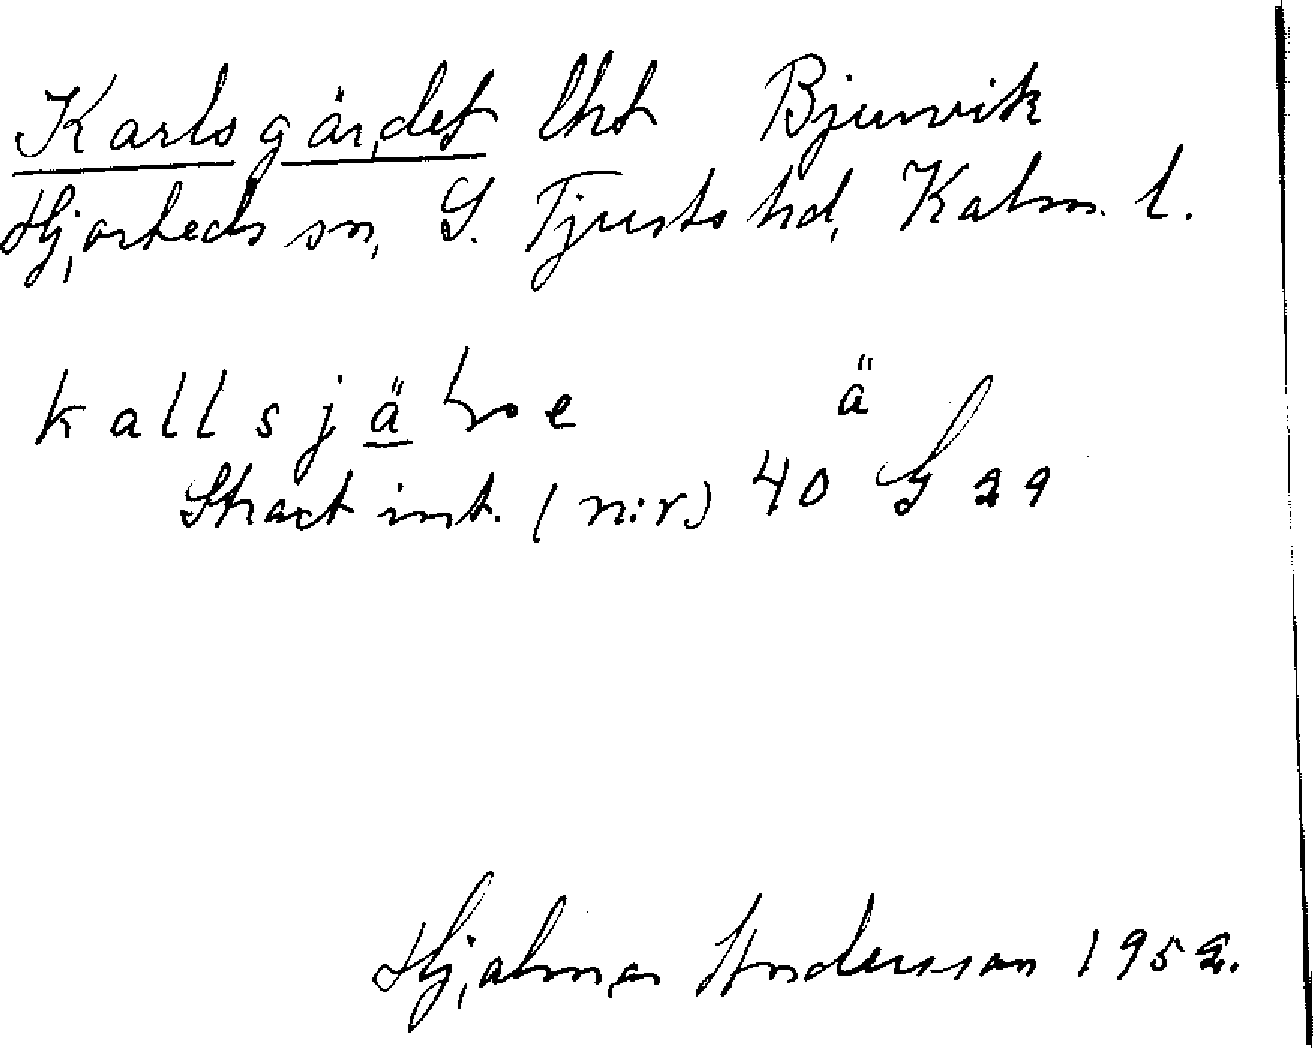 Karlsgärdet lht Bjurvik
Hjorteds sn, S. Tjusts hd, Kalm. l.
kallsjä e ä
Skact int. (n:r.) 40 G 29
Hjalmar Andersson 1952.